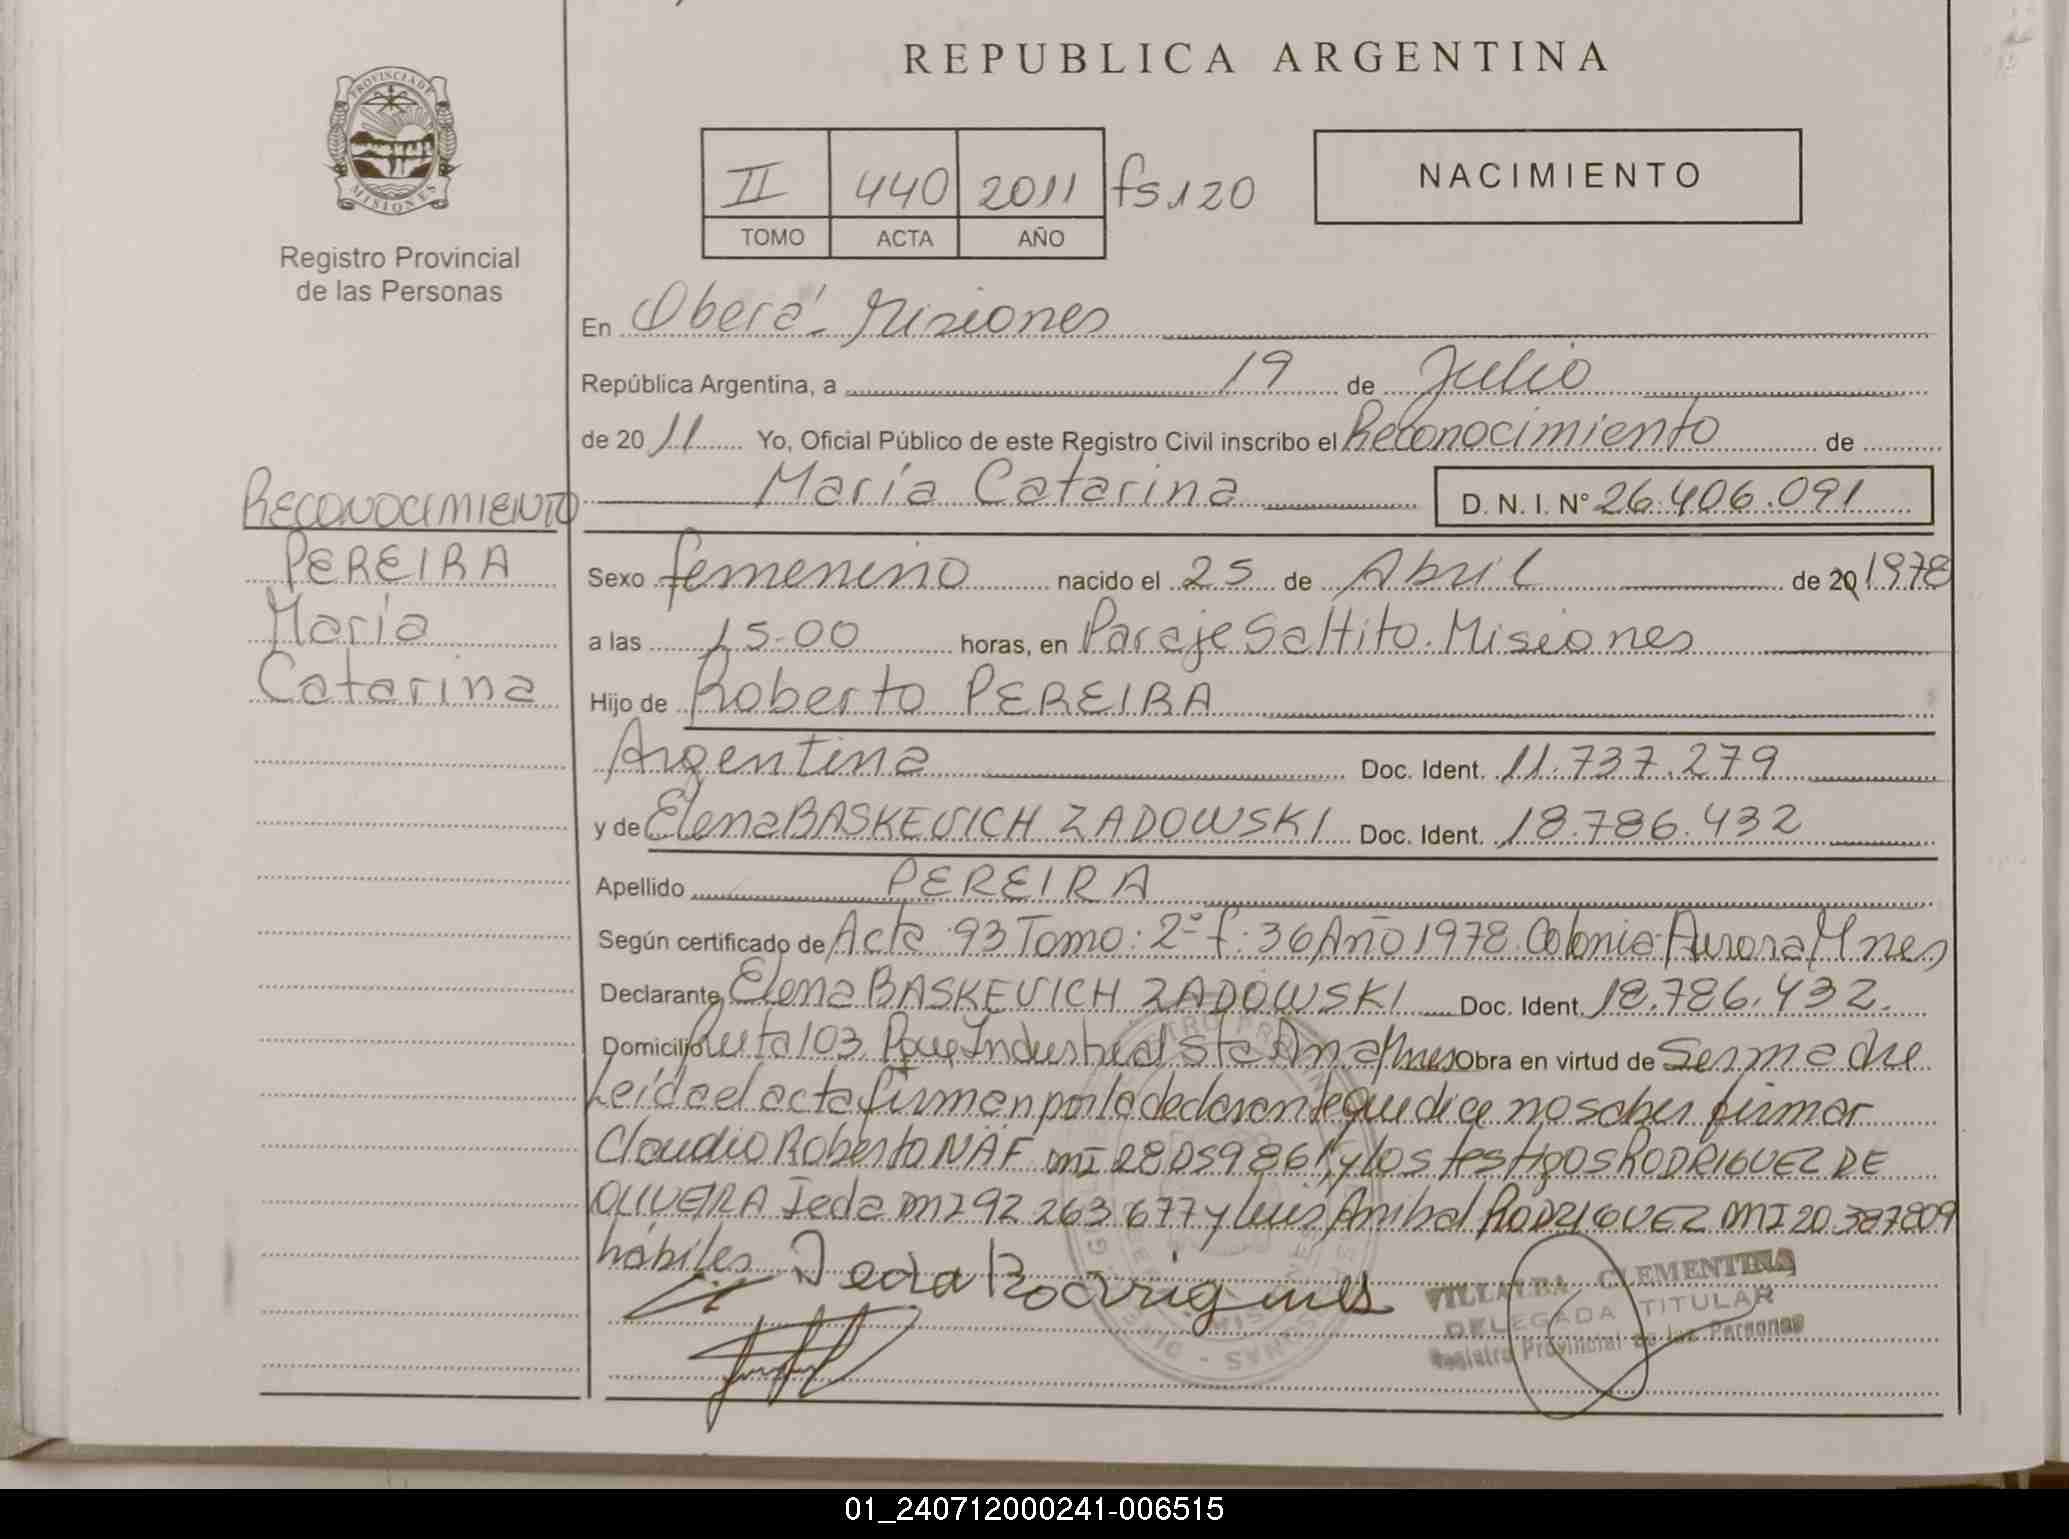 REPUBLICA ARGENTINA
PROVINCIA DE MISIONES
Registro Provincial
de las Personas
II 440 2011 fs 120
TOMO ACTA AÑO
NACIMIENTO
En Oberá - Misiones
República Argentina, a 19 de Julio
de 2011 Yo, Oficial Público de este Registro Civil inscribo el Reconocimiento de
María Catarina D. N. I. N° 26.406.091
RECONOCIMIENTO
PEREIRA
María
Catarina
Sexo femenino nacido el 25 de Abril de 20 1978
a las 15.00 horas, en Paraje Saltito. Misiones
Hijo de Roberto PEREIRA
Argentina Doc. Ident. 11.737.279
y de Elena BASKEVICH ZADOWSKI Doc. Ident. 18.786.432
Apellido PEREIRA
Según certificado de Acta 93 Tomo: 2º f. 36 Año 1978. Colonia Aurora Mnes
Declarante Elena BASKEVICH ZADOWSKI Doc. Ident. 18.786.432.
Domicilio Ruta 103 Industrial Sta Ana Mnes Obra en virtud de Ser madre
Leída el acta firman por la declarante que dice no saber firmar
Claudio Roberto NÄF MI 28059861 y los testigos RODRIGUEZ DE
OLIVEIRA Ieda DNI 92 263 677 y Luis Anibal RODRIGUEZ MI 20.387809
hábiles
Ieda Rodrigues
VILLALBA CLEMENTINA
DELEGADA TITULAR
Registro Provincial de las Personas
01_240712000241-006515